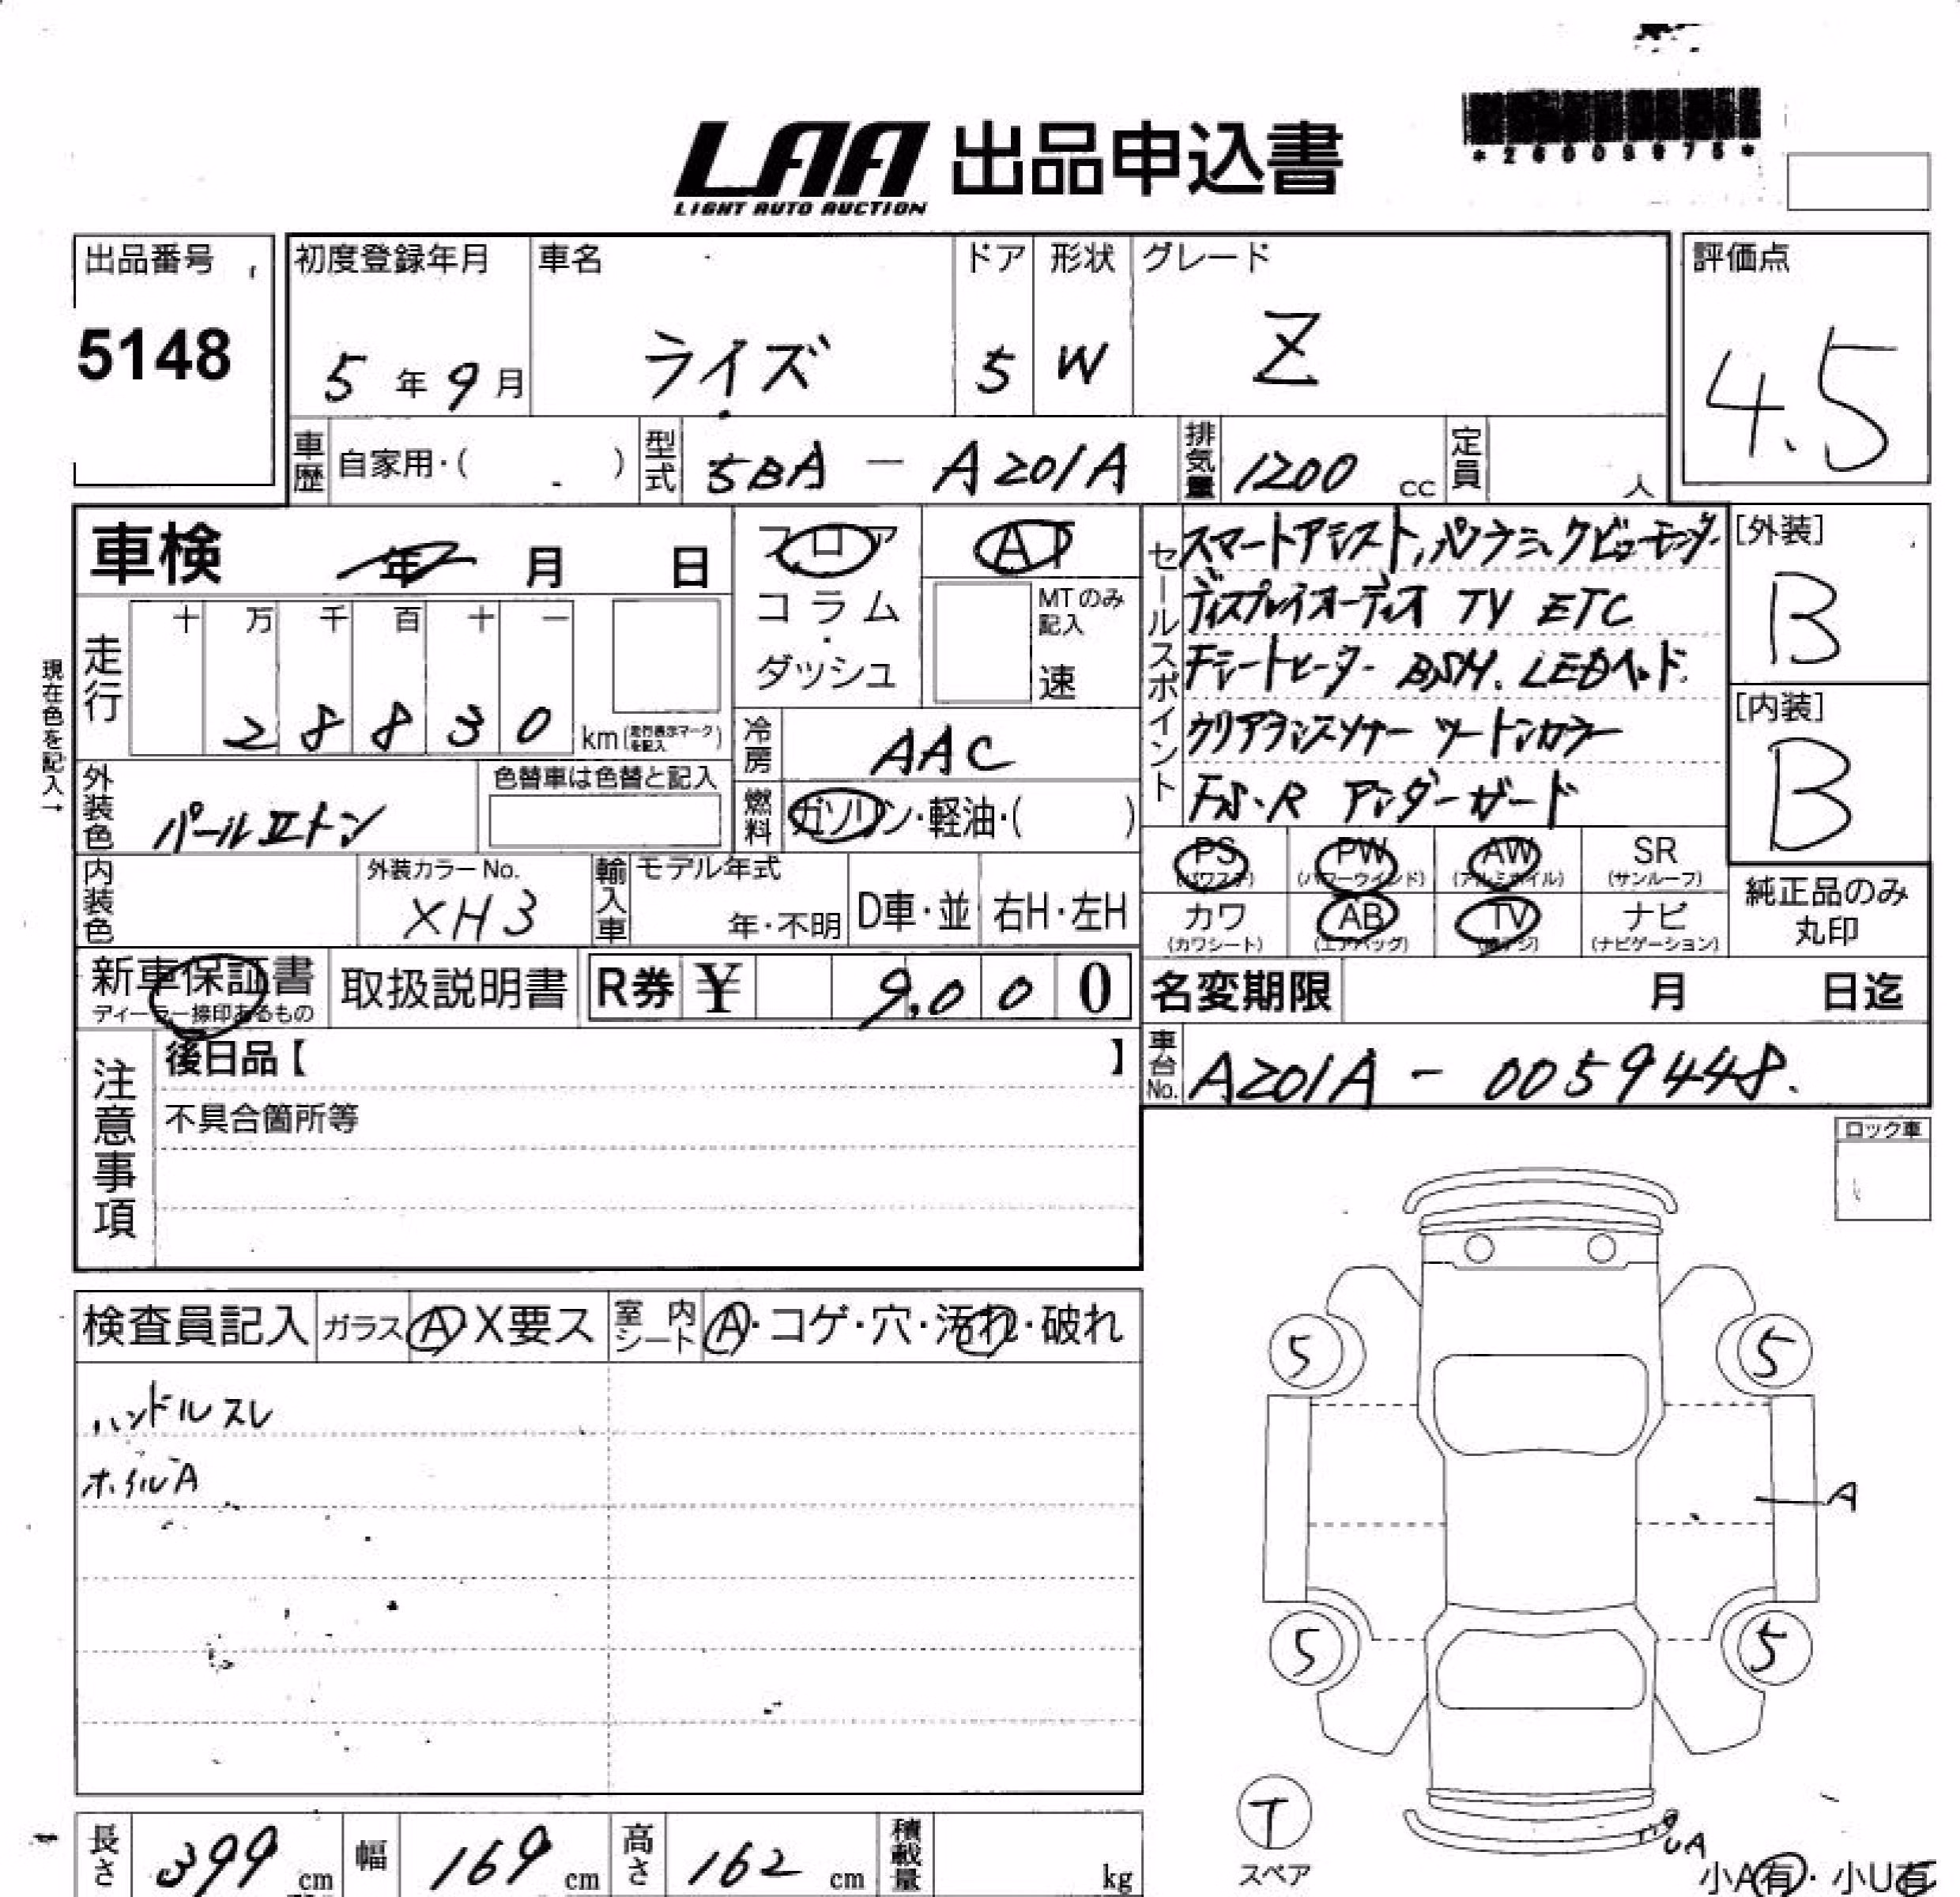 *26009875*
LAA 出品申込書
LIGHT AUTO AUCTION
出品番号 初度登録年月 車名 ドア 形状 グレード 評価点
5148 5年9月 ライズ 5 W Z 4.5
車歴 自家用・( ) 型式 5BA - A201A 排気量 1200 cc 定員 人
車検 年 月 日 フロア AT
コラム・ダッシュ MTのみ記入 速
現在色を記入→
走行 十 万 千 百 十 一
2 8 8 3 0 km (走行表示マークを記入)
冷房 AAC
外装色 パールⅡトン 色替車は色替と記入 燃料 ガソリン・軽油・( )
内装色 外装カラーNo. XH3 輸入車 モデル年式 年・不明 D車・並 右H・左H
セールスポイント
スマートアシスト,パノラミックビューモニター
ディスプレイオーディオ TV ETC
Fシートヒーター BSM. LEDヘッド.
クリアランスソナー ツートンカラー
FS・R アンダーガード
[外装] B
[内装] B
PS (パワステ) PW (パワーウインド) AW (アルミホイル) SR (サンルーフ)
カワ (カワシート) AB (エアバッグ) TV (純テジ) ナビ (ナビゲーション)
純正品のみ丸印
新車保証書 ディーラー捺印あるもの 取扱説明書 R券 ¥ 9,000 名変期限 月 日迄
車台No. A201A - 0059448.
注意事項 後日品【 】
不具合箇所等
ロック車
検査員記入 ガラス A X要ス 室内シート A・コゲ・穴・汚れ・破れ
ハンドルスレ
ホイルA
5 5
A
5 5
T
スペア
UA
小A有・小U有
長さ 399 cm 幅 169 cm 高さ 162 cm 積載量 kg